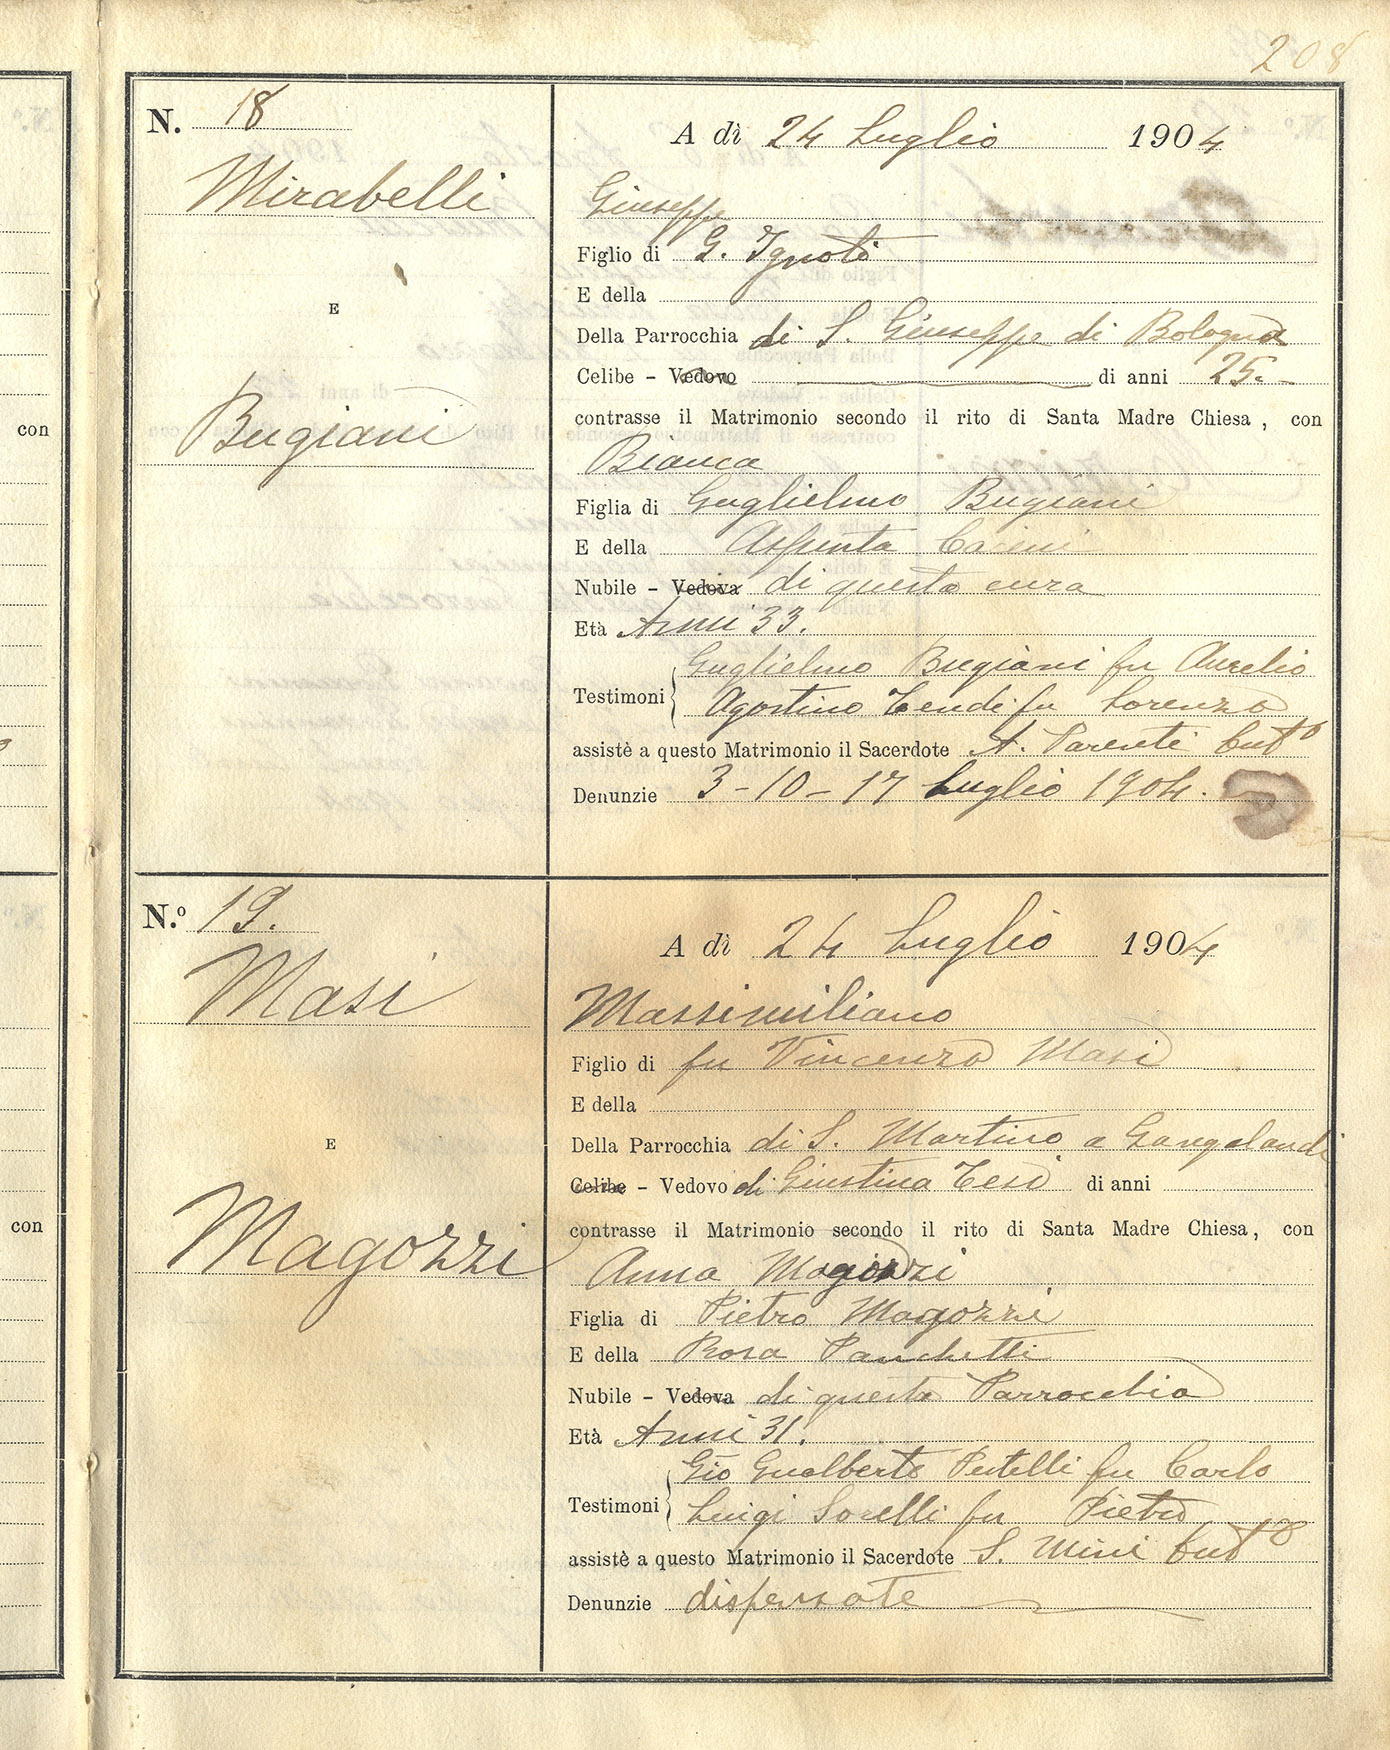 208
N. 18
Mirabelli
E
Bugiani
A dì 24 Luglio 1904
Giuseppe
Figlio di G. Ignoti
E della
Della Parrocchia di S. Giuseppe di Bologna
Celibe - Vedovo di anni 25.-
contrasse il Matrimonio secondo il rito di Santa Madre Chiesa, con
Bianca
Figlia di Guglielmo Bugiani
E della Assunta
Nubile - Vedova di questa cura
Età Anni 33.
Guglielmo Bugiani fu Aurelio
Testimoni
Agostino Tendi fu Lorenzo
assistè a questo Matrimonio il Sacerdote A. Parenti
Denunzie 3-10-17 Luglio 1904.
N.º 19.
Masi
E
Magozzi
A dì 24 Luglio 1904
Massimiliano
Figlio di fu Vincenzo Masi
E della
Della Parrocchia di S. Martino a Gangalandi
Celibe - Vedovo di Giustina Tesi di anni
contrasse il Matrimonio secondo il rito di Santa Madre Chiesa, con
Anna Magozzi
Figlia di Pietro Magozzi
E della Rosa Panchetti
Nubile - Vedova di questa Parrocchia
Età Anni 31.
Gio Gualberto Putelli fu Carlo
Testimoni
Luigi Sorelli fu Pietro
assistè a questo Matrimonio il Sacerdote S. Mini
Denunzie dispensate
con
con